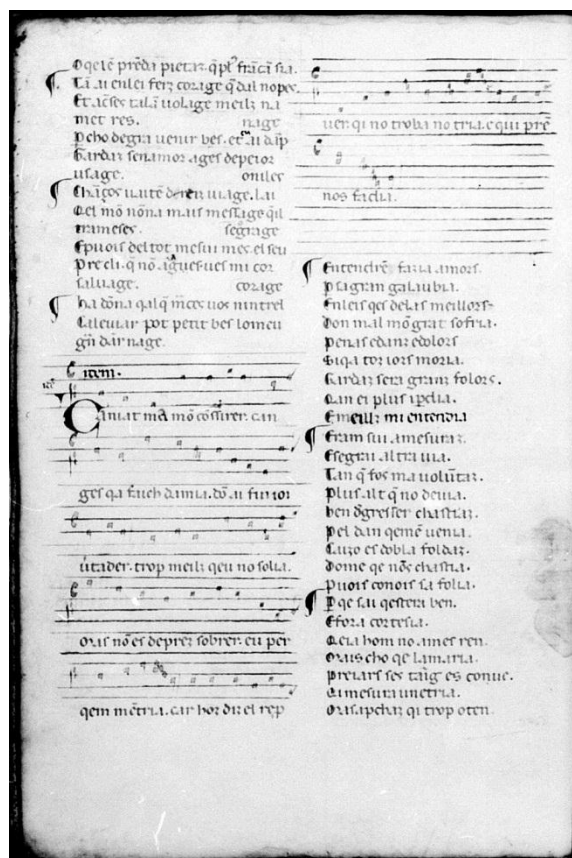 O qe lē prēda pietaz. q̄ pl᷒ frācā sia.
Tā ai en lei ferz corage q̄ dal no pes.
Et ades talā uolage meilz na
met res. nage
P cho degra uenir bes. et
Gardaz sen amor ages de peior
usage. oniles
Chāços uai tē
Qel mō nōna mais message qil
trameses. segrage
E puois del tot me sui mes. el seu
saluage. corage
Na dōna qalq m̄ces uos nintrel
Caleuiar pot petit bes lo meu
gn̄ dānage.
item.
Caniat mā mō cōssirer. can
ges qa fach damia. dō ai fin ior
útader. trop meilz qeu no solia.
Mais nō es de prez sobrer. eu per
qem mētria. car hor diz el rep
uer. qi no troba no tria. e qui prē
nos fadia.
Entendre faria amors.
P sa gran galaubia.
En leis qes delas meillors.
Don mal mō grat sofria.
Penas e danz e dolors
Gardaz sera granz folors.
Qan ei plus ipdia.
E meillz mi entendia
Eram sui amesuraz.
E segrai altra uia.
Tan q̄ fos ma volūtaz.
Plus alt q̄ no deuia.
Ben dgresser chastiaz.
Pel dan qe mē uenia.
Cuzo es dobla foldaz.
Dome qe nōs chastia.
Puois conois sa folia.
P qe sai qesteri ben.
E fora cortesia.
Qeia hom no ames ren.
Mais cho qe lamaria.
Preiars ses tāig es conue.
Qi mesura un etria.
Mas apchaz qi trop oten.